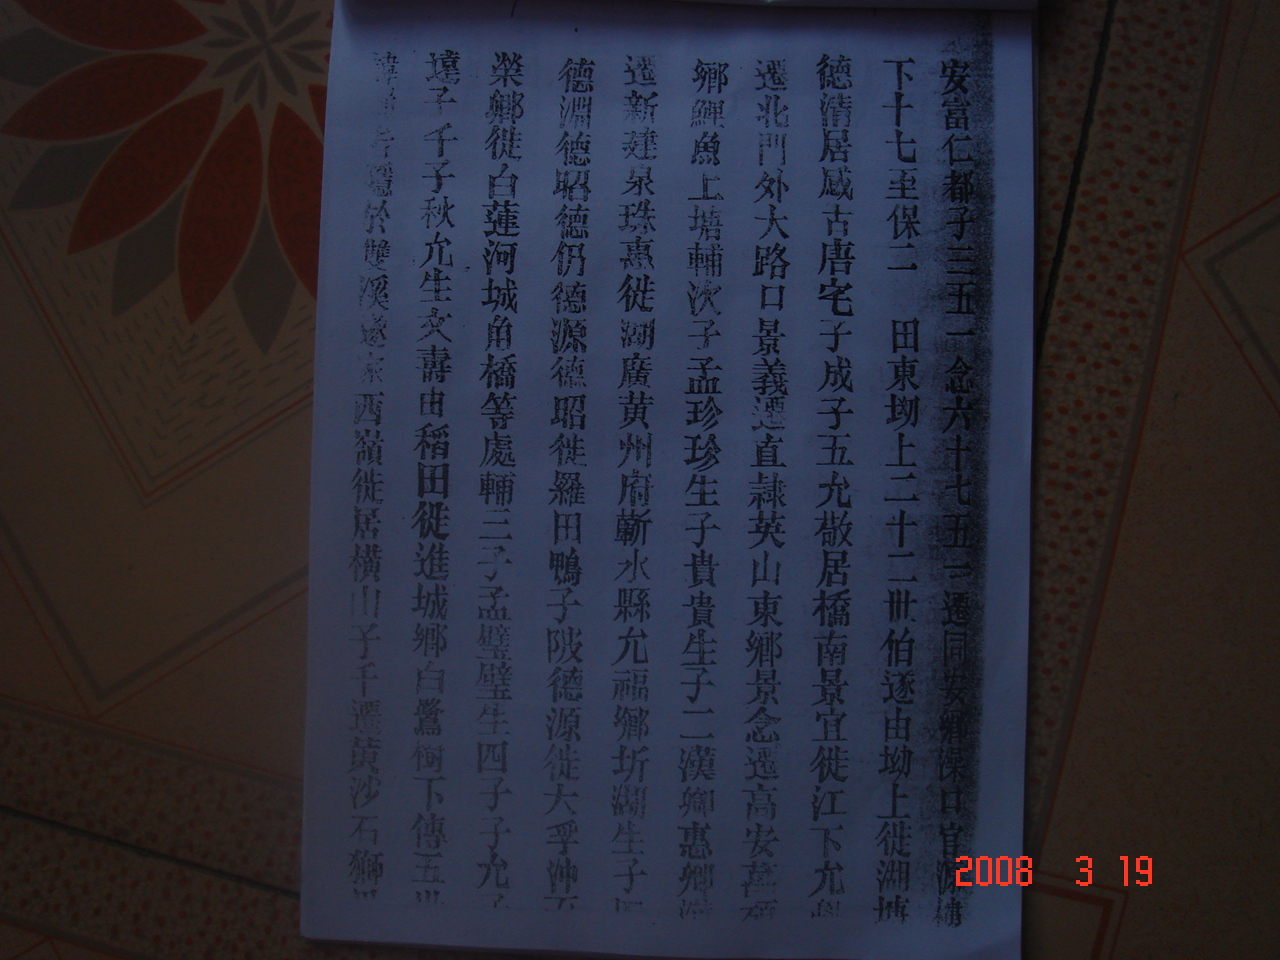 安富仁都子三五一念六十七五三遷同安鄉澡口官源構
下十七至保二 田東坳上二十二世伯遂由坳上徙湖塘
德清居咸古唐宅子成子五允敬居橋南景宜徙江下允
遷北門外大路口景義遷直隸英山東鄉景念遷高安
鄉鯉魚上塘輔次子孟珍珍生子貴貴生子二漢卿惠卿
遷新建泉珠惠徙湖廣黃州府蘄水縣允福鄉圻湖生子
德淵德昭德仍德源德昭徙羅田鴨子陂德源徙大孚沖
榮鄉徙白蓮河城角橋等處輔三子孟璧璧生四子子允
壇子千子秋允生文壽由稻田徙進城鄉白鷺樹下傳五世
於雙溪遂家西嶺徙居橫山子千遷黃沙石獅
2008 3 19